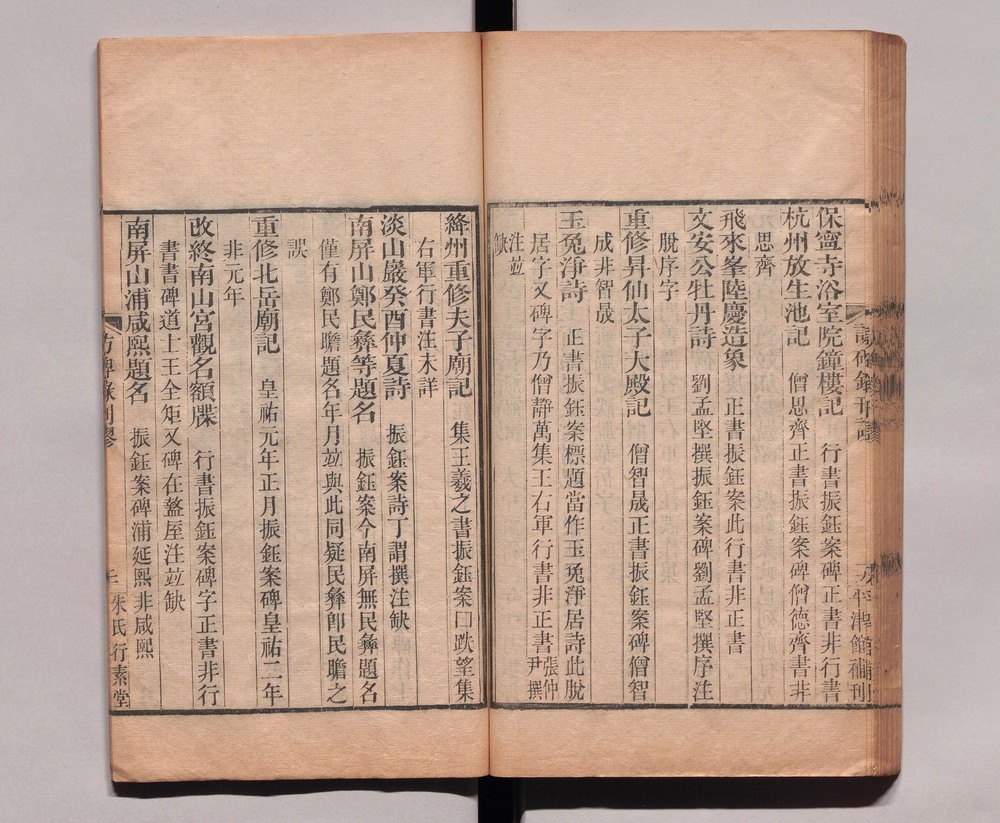 保寧寺浴室院鐘樓記 行書振鈺案碑正書非行書
杭州放生池記 僧思齊正書振鈺案碑僧德齊書非
思齊
飛來峯陸慶造象 正書振鈺案此行書非正書
文安公牡丹詩 劉孟堅撰振鈺案碑劉孟堅撰序注
脫序字
重修昇仙太子大殿記 僧智晟正書振鈺案碑僧智
成非智晟
玉兔淨詩 正書振鈺案標題當作玉兔淨居詩此脫
居字又碑字乃僧靜萬集王右軍行書非正書張仲尹撰
注並缺
絳州重修夫子廟記 集王羲之書振鈺案口跌望集
右軍行書注未詳
淡山巖癸酉仲夏詩 振鈺案詩丁謂撰注缺
南屏山鄭民彝等題名 振鈺案今南屏無民彝題名
僅有鄭民瞻題名年月並與此同疑民彝卽民瞻之
誤
重修北岳廟記 皇祐元年正月振鈺案碑皇祐二年
非元年
改終南山宮觀名額牒 行書振鈺案碑字正書非行
書書碑道士王全矩又碑在盩厔注並缺
南屏山浦咸熙題名 振鈺案碑浦延熙非咸熙
三 朱氏行素堂